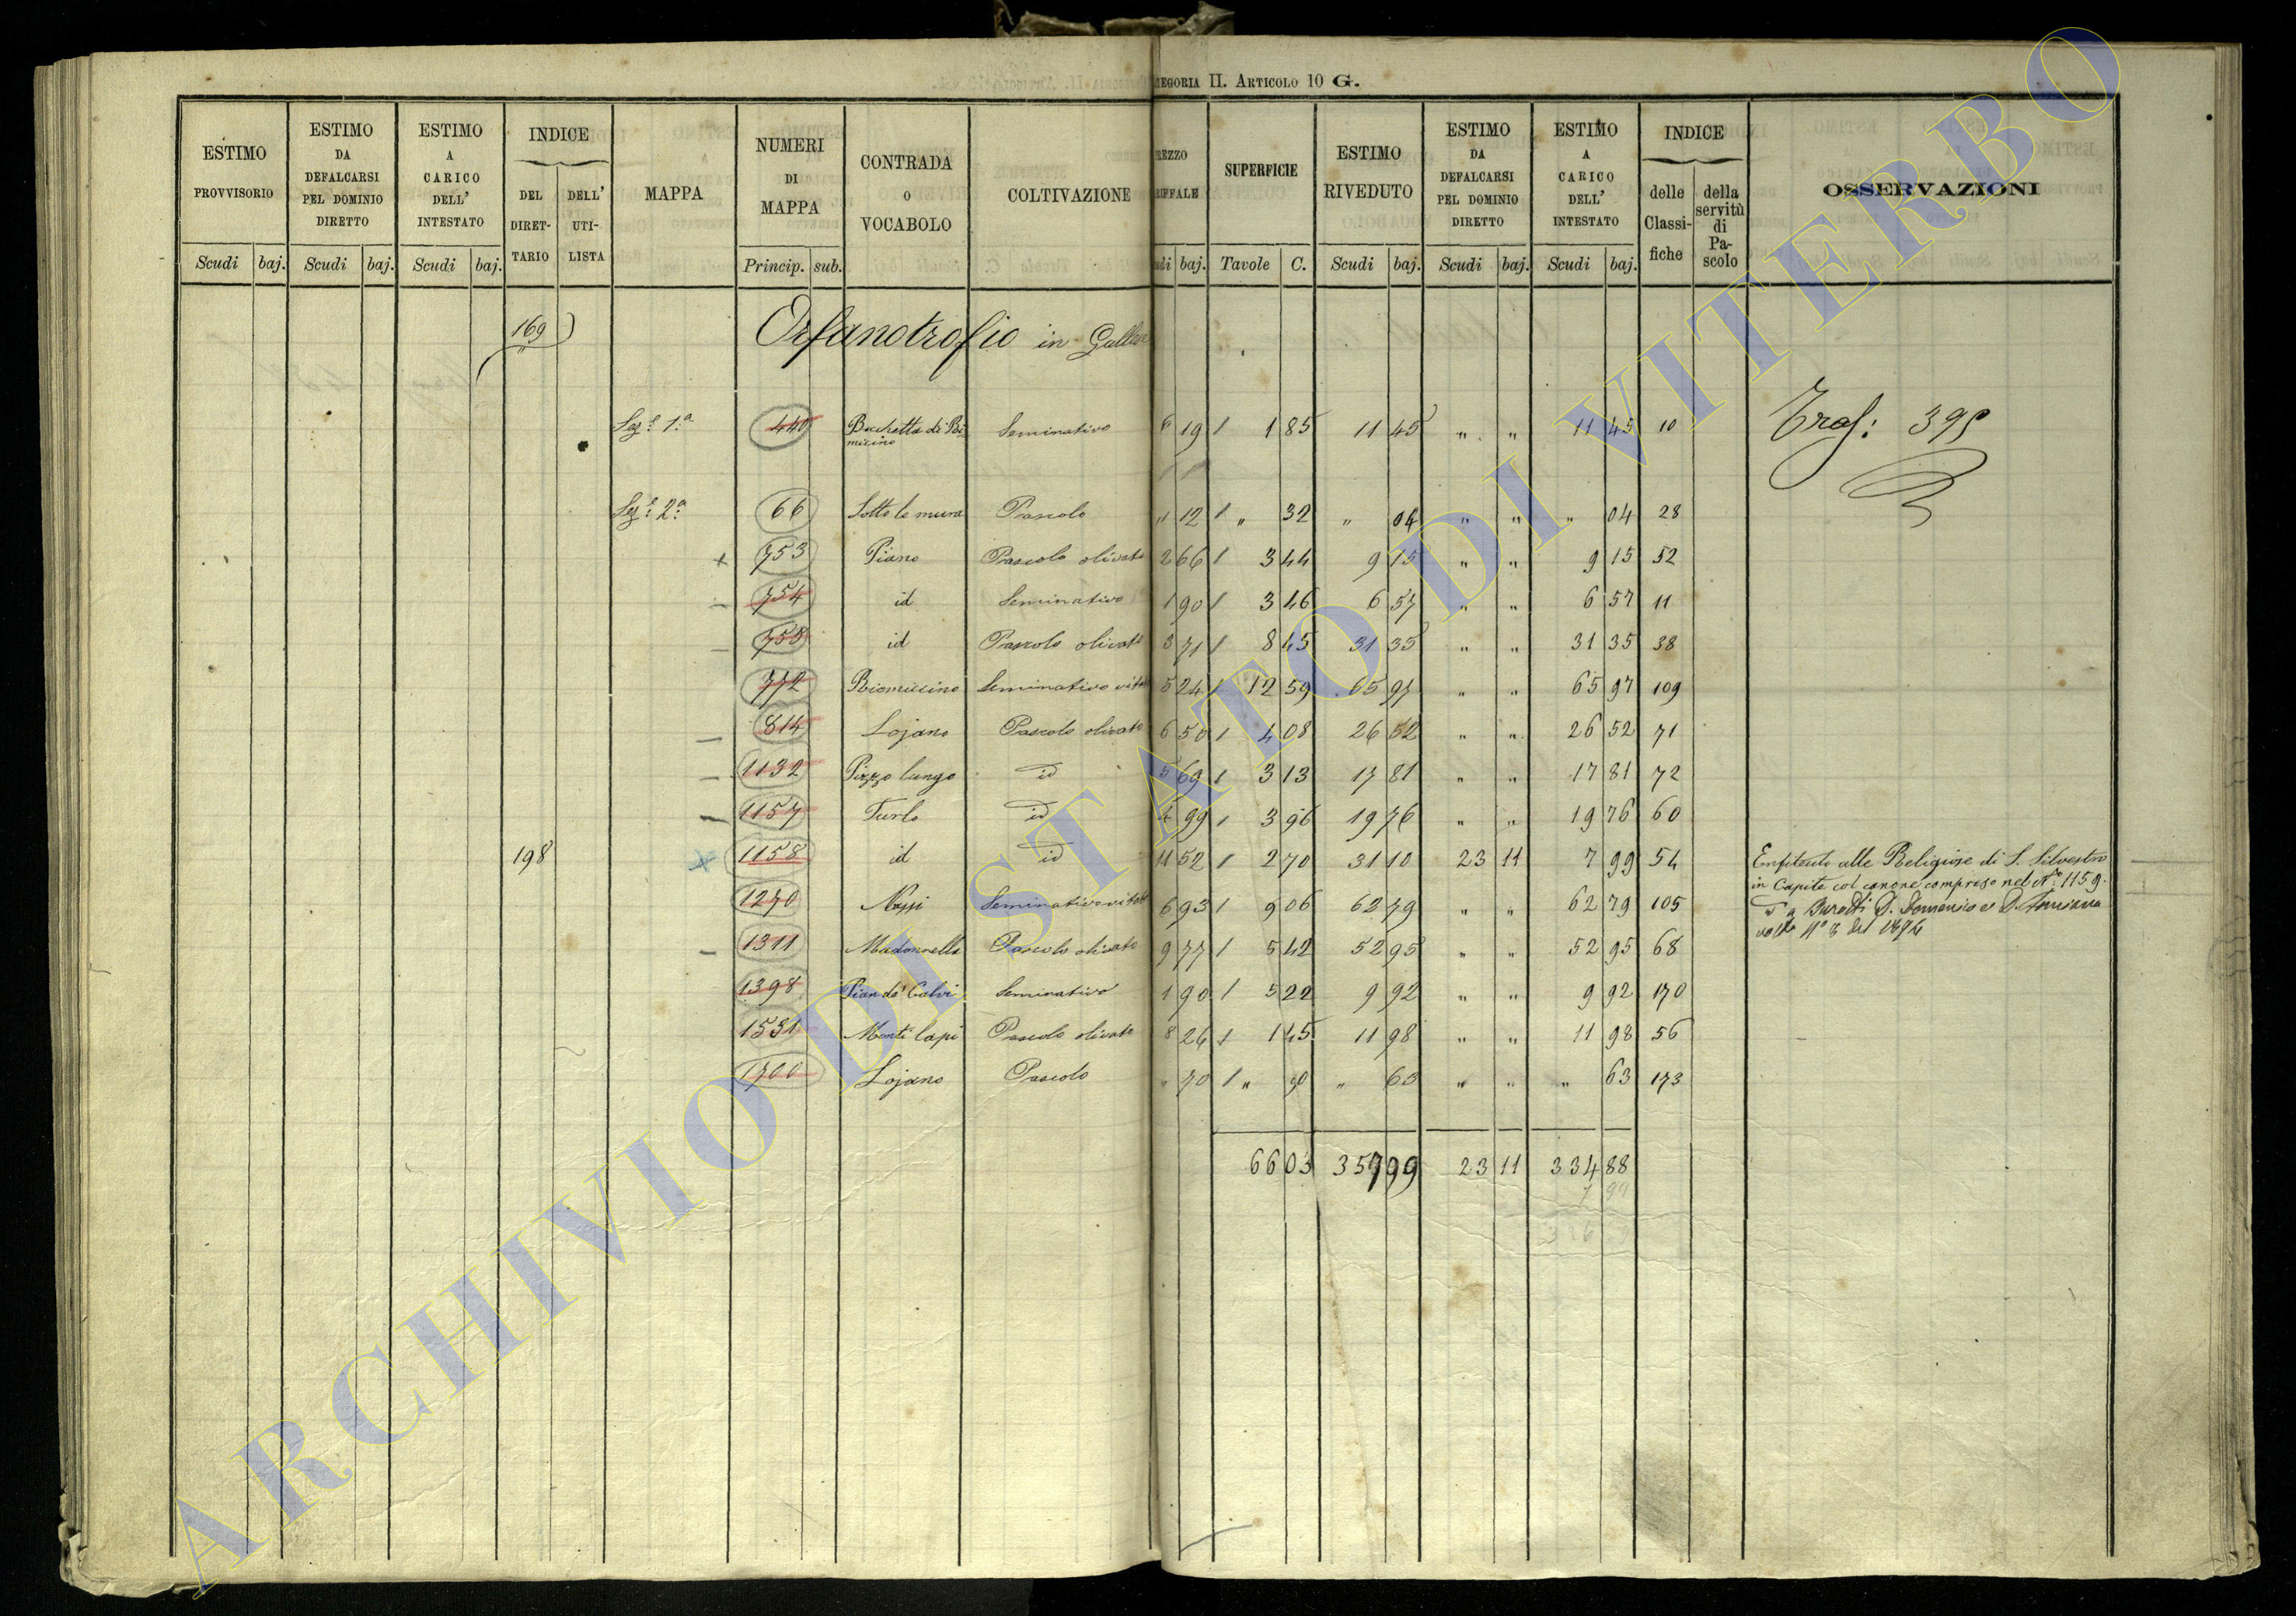 EGORIA II. ARTICOLO 10 G.
ESTIMO PROVVISORIO
ESTIMO DA DEFALCARSI PEL DOMINIO DIRETTO
ESTIMO A CARICO DELL' INTESTATO
INDICE
DEL DIRETTARIO
DELL' UTILISTA
MAPPA
NUMERI DI MAPPA
CONTRADA O VOCABOLO
COLTIVAZIONE
REZZO RIFFALE
SUPERFICIE
ESTIMO RIVEDUTO
ESTIMO DA DEFALCARSI PEL DOMINIO DIRETTO
ESTIMO A CARICO DELL' INTESTATO
INDICE
delle Classifiche
della servitù di Pascolo
OSSERVAZIONI
Scudi baj. Scudi baj. Scudi baj. Princip. sub. udi baj. Tavole C. Scudi baj. Scudi baj. Scudi baj.
169 Orfanotrofio in
Sez.e 1.a 440 Seminativo 6 19 1 85 11 45 " " 11 45 10 395
Sez.e 2.a 66 Sotto le mura Pascolo " 12 " 32 " 04 " " " 04 28
753 Piano Pascolo olivato 2 66 3 44 9 15 " " 9 15 52
754 id Seminativo 1 90 3 46 6 57 " " 6 57 11
755 id Pascolo olivato 3 71 8 45 31 35 " " 31 35 38
772 Seminativo 5 24 12 59 65 97 " " 65 97 109
814 Lojano Pascolo olivato 6 50 4 08 26 52 " " 26 52 71
1132 Pizzo lungo id 5 69 3 13 17 81 " " 17 81 72
1157 Turlo id 4 99 3 96 19 76 " " 19 76 60
198 1158 id id 11 52 2 70 31 10 23 11 7 99 54 Enfiteuti alle Religiose di S. Silvestro
in Capite col canone compreso nel N.o 1159.
1270 6 93 9 06 62 79 " " 62 79 105
1311 Madonnella Pascolo olivato 9 77 5 42 52 95 " " 52 95 68
1398 Pian de' Calvi Seminativo 1 90 5 22 9 92 " " 9 92 170
1531 Pascolo olivato 8 26 1 45 11 98 " " 11 98 56
1700 Lojano Pascolo " 70 " 90 " 63 " " " 63 173
66 03 357 99 23 11 334 88
ARCHIVIO DI STATO DI VITERBO